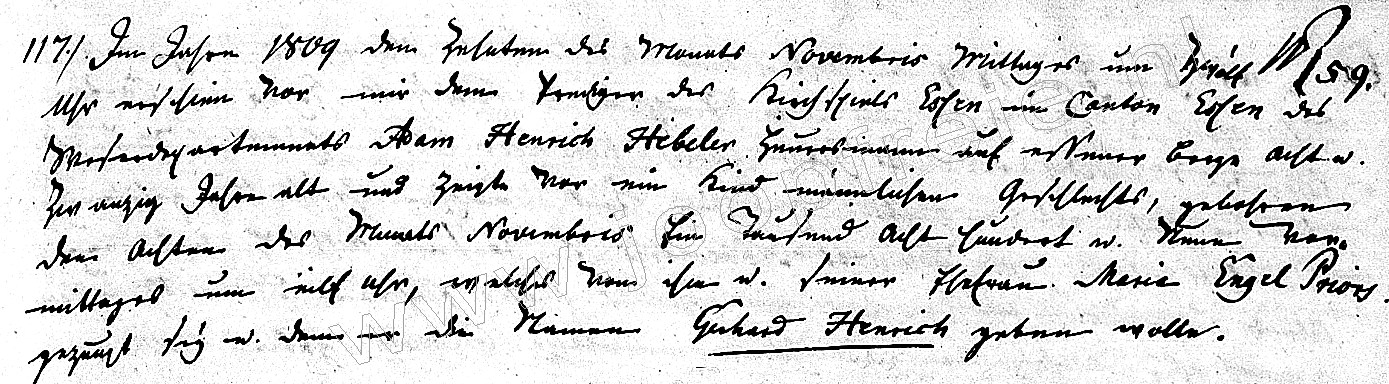 117./. Im Jahre 1809 den Zehnten des Monats Novembris Mittages um Zwölf 59.
Uhr erschien vor mir dem Prediger des Kirchspiels Essen im Canton Essen des
Weserdepartements Adam Henrich Hebeler Heuersmann auf essener Berge acht u.
Zwanzig Jahre alt und zeigte vor ein Kind männlichen Geschlechts, gebohren
den achten des Monats Novembris Ein Tausend acht hundert u. Neun Vor-
mittages um eilf Uhr, welches von ihm u. seiner Ehefrau Maria Engel Priors.
gezeugt sey u. dem er die Namen Gerhard Henrich geben wolle.